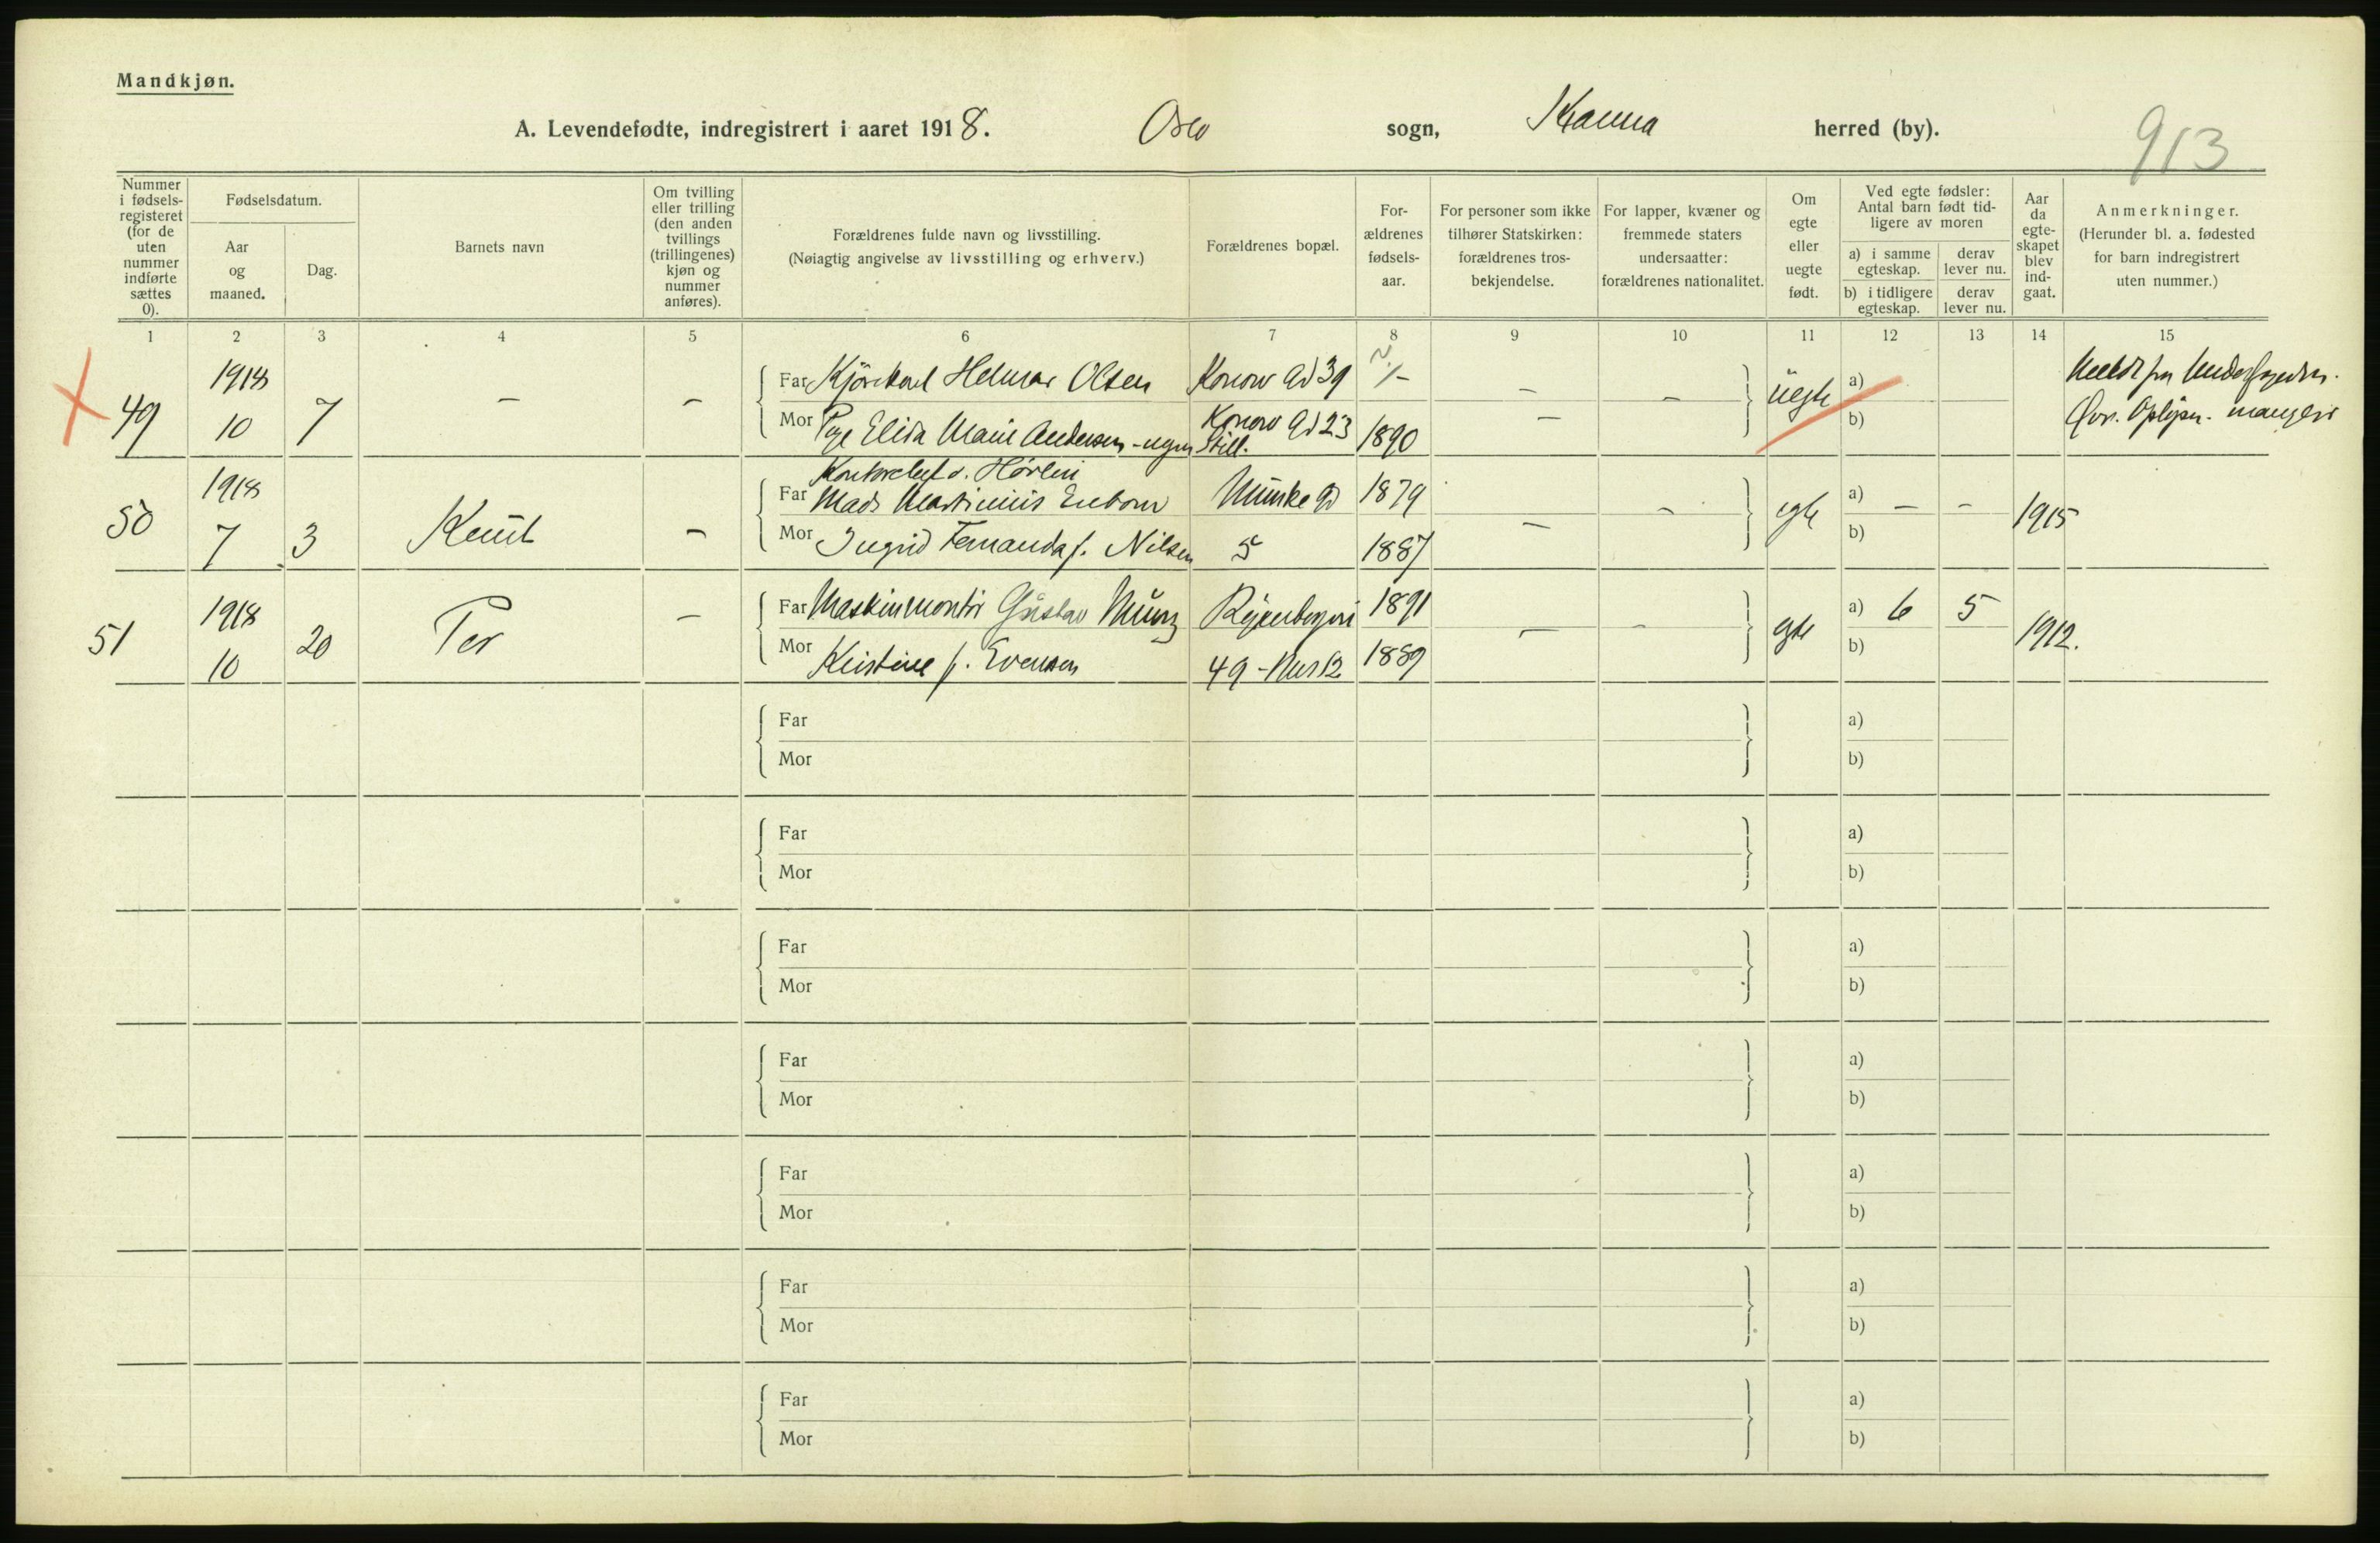 Mandkjøn.
A. Levendefødte, indregistrert i aaret 1918. Oslo sogn, Kr.ania herred (by).
913
Nummer i fødsels-registeret (for de uten nummer indførte sættes 0).
Fødselsdatum.
Aar og maaned.
Dag.
Barnets navn
Om tvilling eller trilling (den anden tvillings (trillingenes) kjøn og nummer anføres).
Forældrenes fulde navn og livsstilling.
(Nøiagtig angivelse av livsstilling og erhverv.)
Forældrenes bopæl.
For-ældrenes fødsels-aar.
For personer som ikke tilhører Statskirken: forældrenes tros-bekjendelse.
For lapper, kvæner og fremmede staters undersaatter: forældrenes nationalitet.
Om egte eller uegte født.
Ved egte fødsler: Antal barn født tid-ligere av moren
a) i samme egteskap.
derav lever nu.
b) i tidligere egteskap.
derav lever nu.
Aar da egte-skapet blev ind-gaat.
Anmerkninger.
(Herunder bl. a. fødested for barn indregistrert uten nummer.)
1 2 3 4 5 6 7 8 9 10 11 12 13 14 15
X 49 1918 10 7 – –
Far Kjörekarl Helmar Olsen Konow Gd 39 ? – – –
Mor Pge Elida Marie Andersen - ugm Still. Konow Gd 23 1890 –
uegte a) b)
Meldt fra
Øvr. Oplysn. mangler
50 1918 7 3 Knut –
Far Mads Martinius Enborn Munke Gd 1879
Mor Ingrid Fernanda f. Nilsen 5 1887 – –
egte a) – – b) 1915
51 1918 10 20 Per –
Far Maskinmontør Gustav Munz 1891
Mor Kristine f. Evensen 49 - 1889 – –
egte a) 6 5 b) 1912.
Far a)
Mor b)
Far a)
Mor b)
Far a)
Mor b)
Far a)
Mor b)
Far a)
Mor b)
Far a)
Mor b)
Far a)
Mor b)